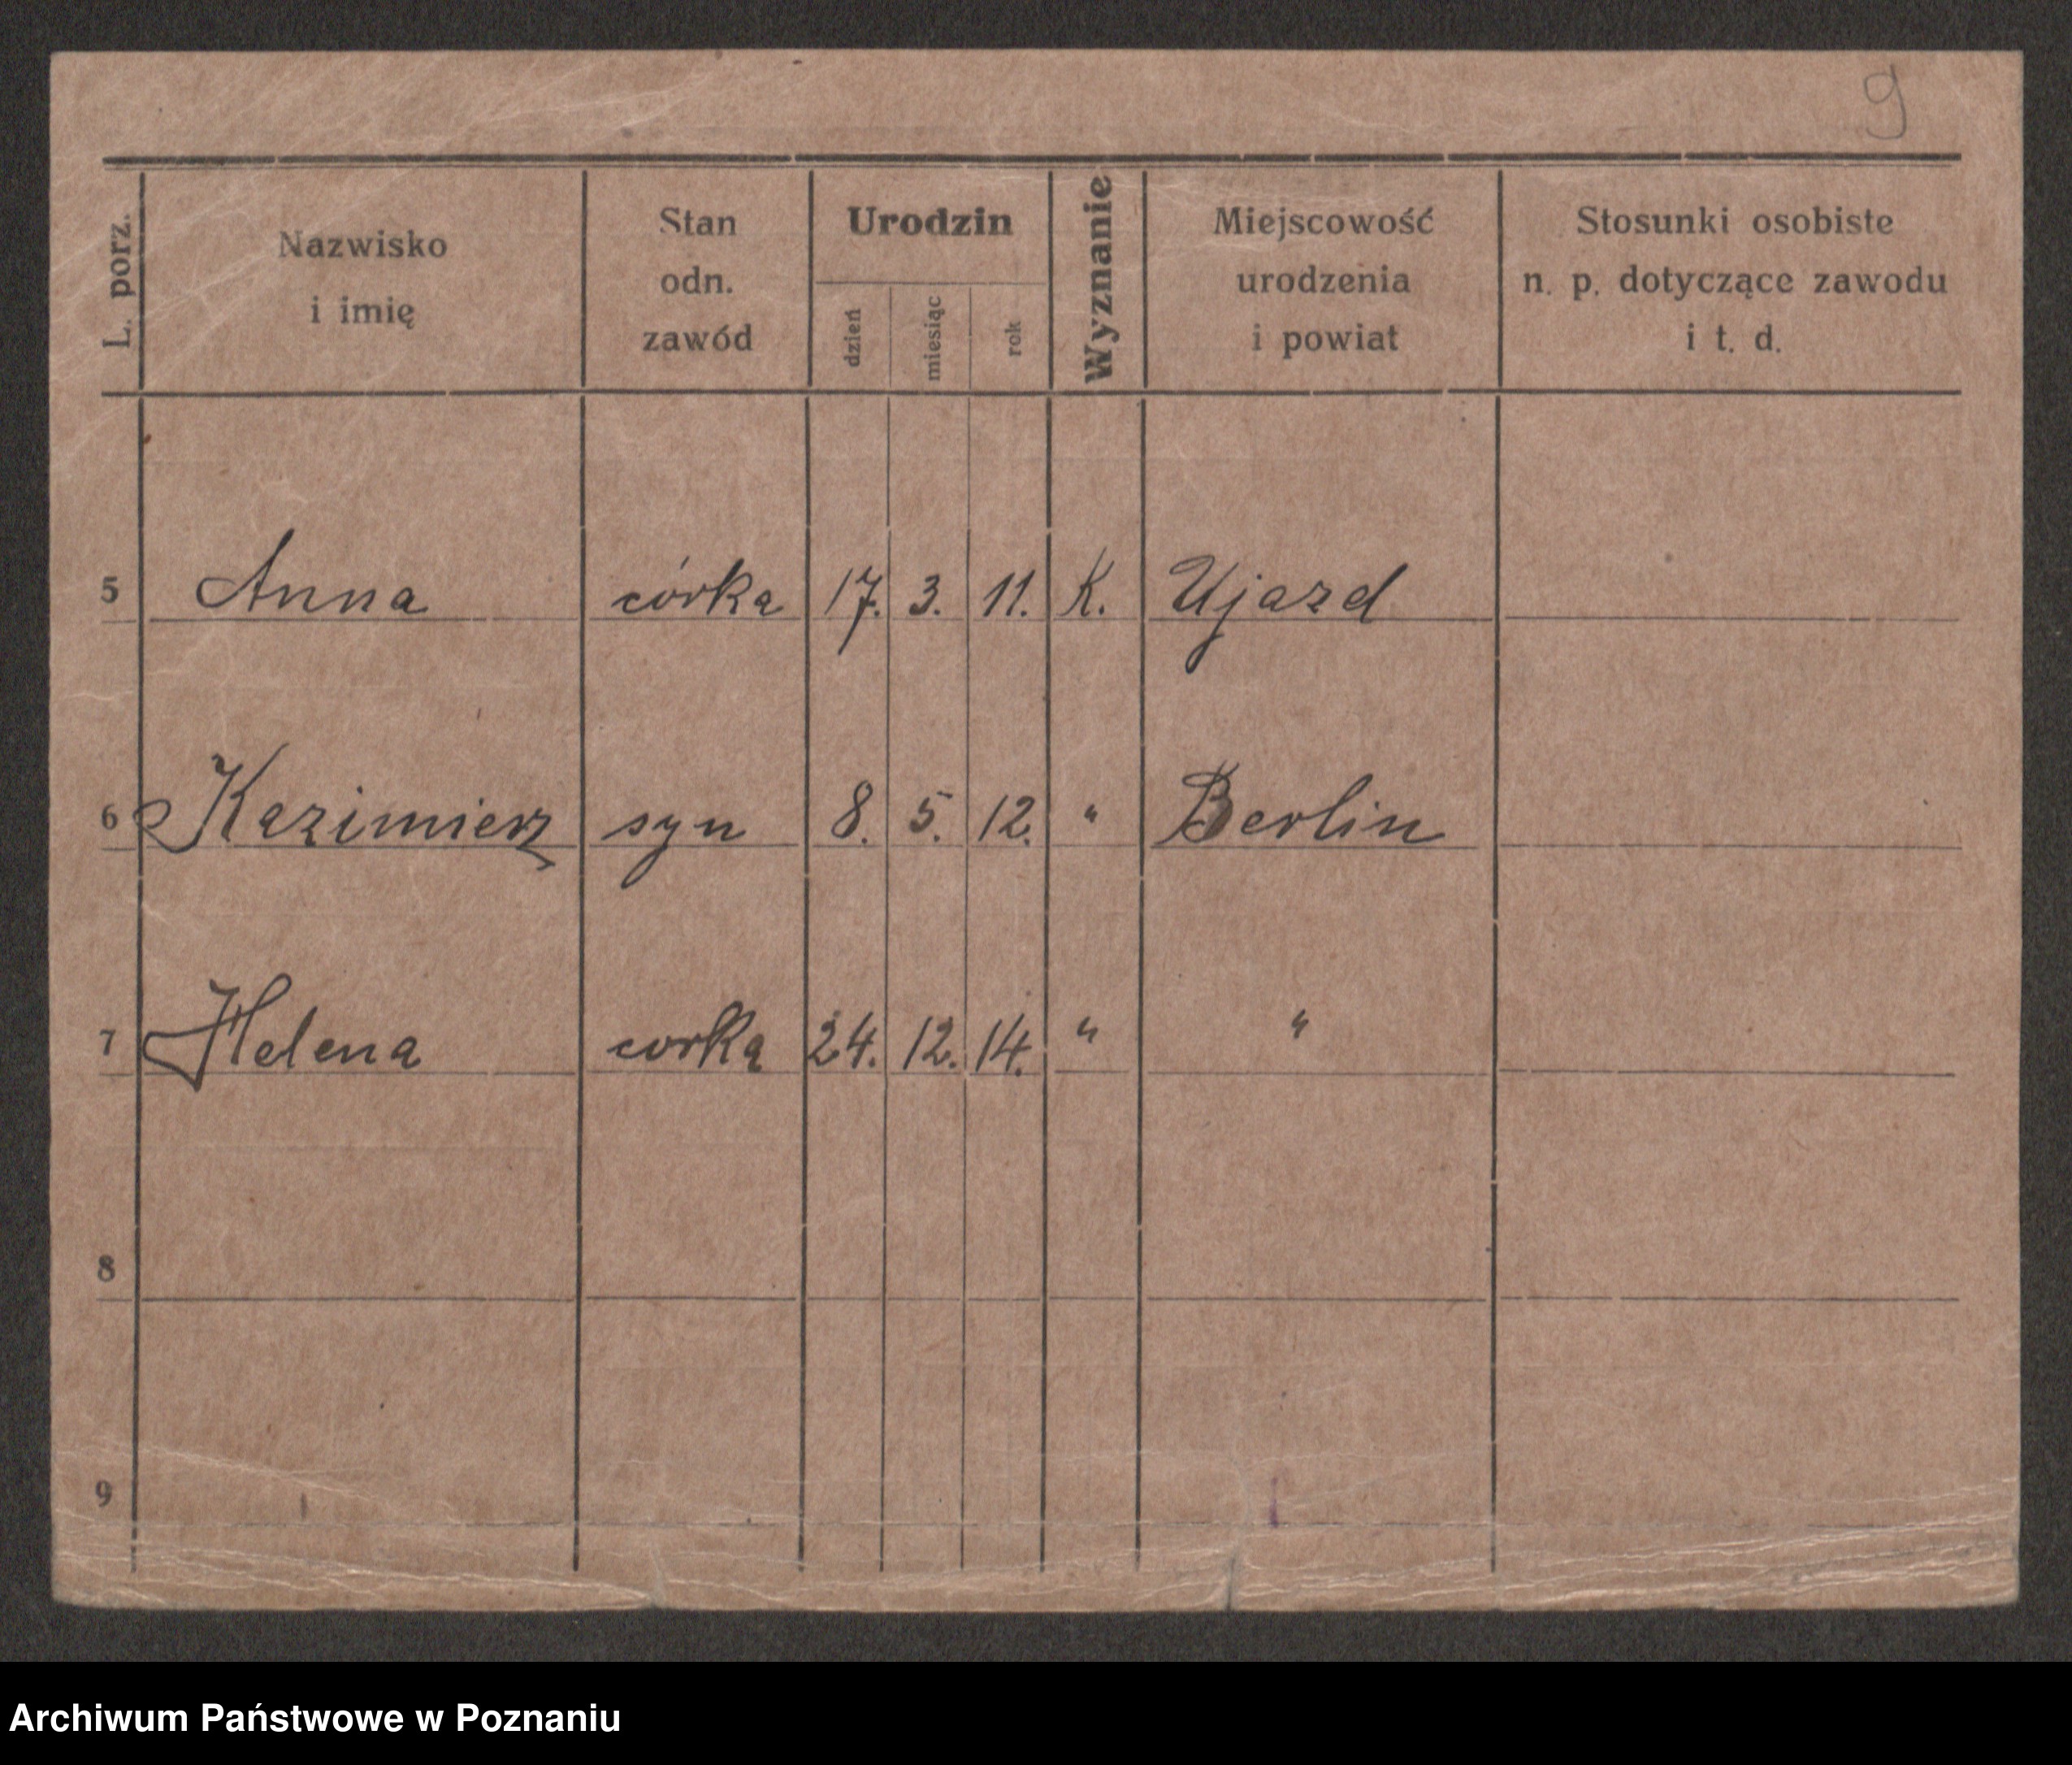 9
L. porz. Nazwisko i imię Stan odn. zawód Urodzin dzień miesiąc rok Wyznanie Miejscowość urodzenia i powiat Stosunki osobiste n. p. dotyczące zawodu i t. d.
5 Anna córka 17. 3. 11. K. Ujazd
6 Kazimierz syn 8. 5. 12. " Berlin
7 Helena corka 24. 12. 14. " "
8
9
Archiwum Państwowe w Poznaniu